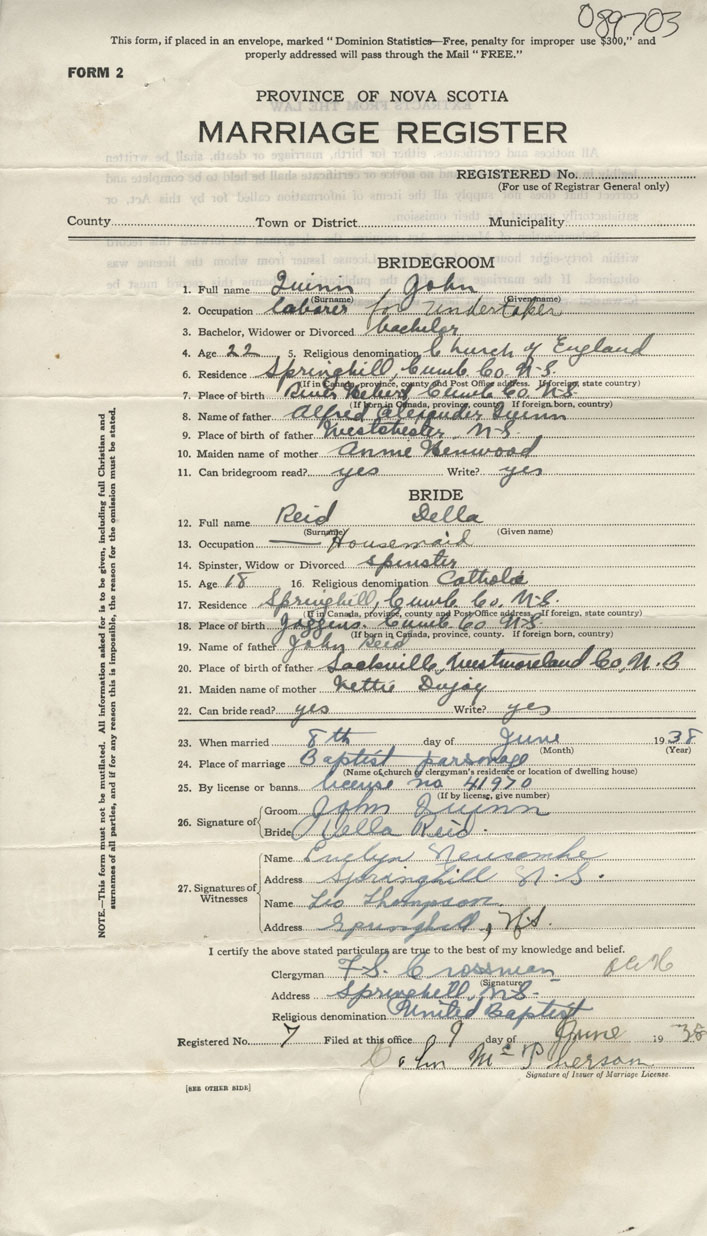 089703
This form, if placed in an envelope, marked "Dominion Statistics—Free, penalty for improper use $300," and
properly addressed will pass through the Mail "FREE."
FORM 2
PROVINCE OF NOVA SCOTIA
MARRIAGE REGISTER
REGISTERED No.
(For use of Registrar General only)
County Town or District Municipality
BRIDEGROOM
1. Full name Quinn John
(Surname) (Given name)
2. Occupation laborer for undertaker
3. Bachelor, Widower or Divorced bachelor
4. Age 22 5. Religious denomination Church of England
6. Residence Springhill, Cumb. Co. N.S.
(If in Canada, province, county and Post Office address. If foreign, state country)
7. Place of birth River Hebert, Cumb. Co. N.S.
(If born in Canada, province, county. If foreign born, country)
8. Name of father Alfred Alexander Quinn
9. Place of birth of father Westchester, N.S
10. Maiden name of mother Annie Henwood
11. Can bridegroom read? yes Write? yes
BRIDE
12. Full name Reid Della
(Surname) (Given name)
13. Occupation Housemaid
14. Spinster, Widow or Divorced spinster
15. Age 18 16. Religious denomination Catholic
17. Residence Springhill, Cumb. Co. N.S.
(If in Canada, province, county and Post Office address. If foreign, state country)
18. Place of birth Joggins, Cumb. Co. N.S.
(If born in Canada, province, county. If foreign born, country)
19. Name of father John Reid
20. Place of birth of father Sackville, Westmoreland Co, N.B
21. Maiden name of mother Nettie
22. Can bride read? yes Write? yes
23. When married 8th day of June 1938
(Month) (Year)
24. Place of marriage Baptist parsonage
(Name of church or clergyman's residence or location of dwelling house)
25. By license or banns license no 41970
(If by license, give number)
26. Signature of Groom John Quinn
Bride Della Reid.
27. Signatures of Witnesses
Name Evelyn Newcombe
Address Springhill N.S.
Name Leo Thompson.
Address Springhill, N.S.
I certify the above stated particulars are true to the best of my knowledge and belief.
Clergyman F.S. Crossman
(Signature)
Address Springhill, N.S.
Religious denomination United Baptist
Registered No. 7 Filed at this office 9 day of June 1938
Colin McPherson
Signature of Issuer of Marriage License.
[SEE OTHER SIDE]
NOTE.—This form must not be mutilated. All information asked for is to be given, including full Christian and
surnames of all parties, and if for any reason this is impossible, the reason for the omission must be stated.